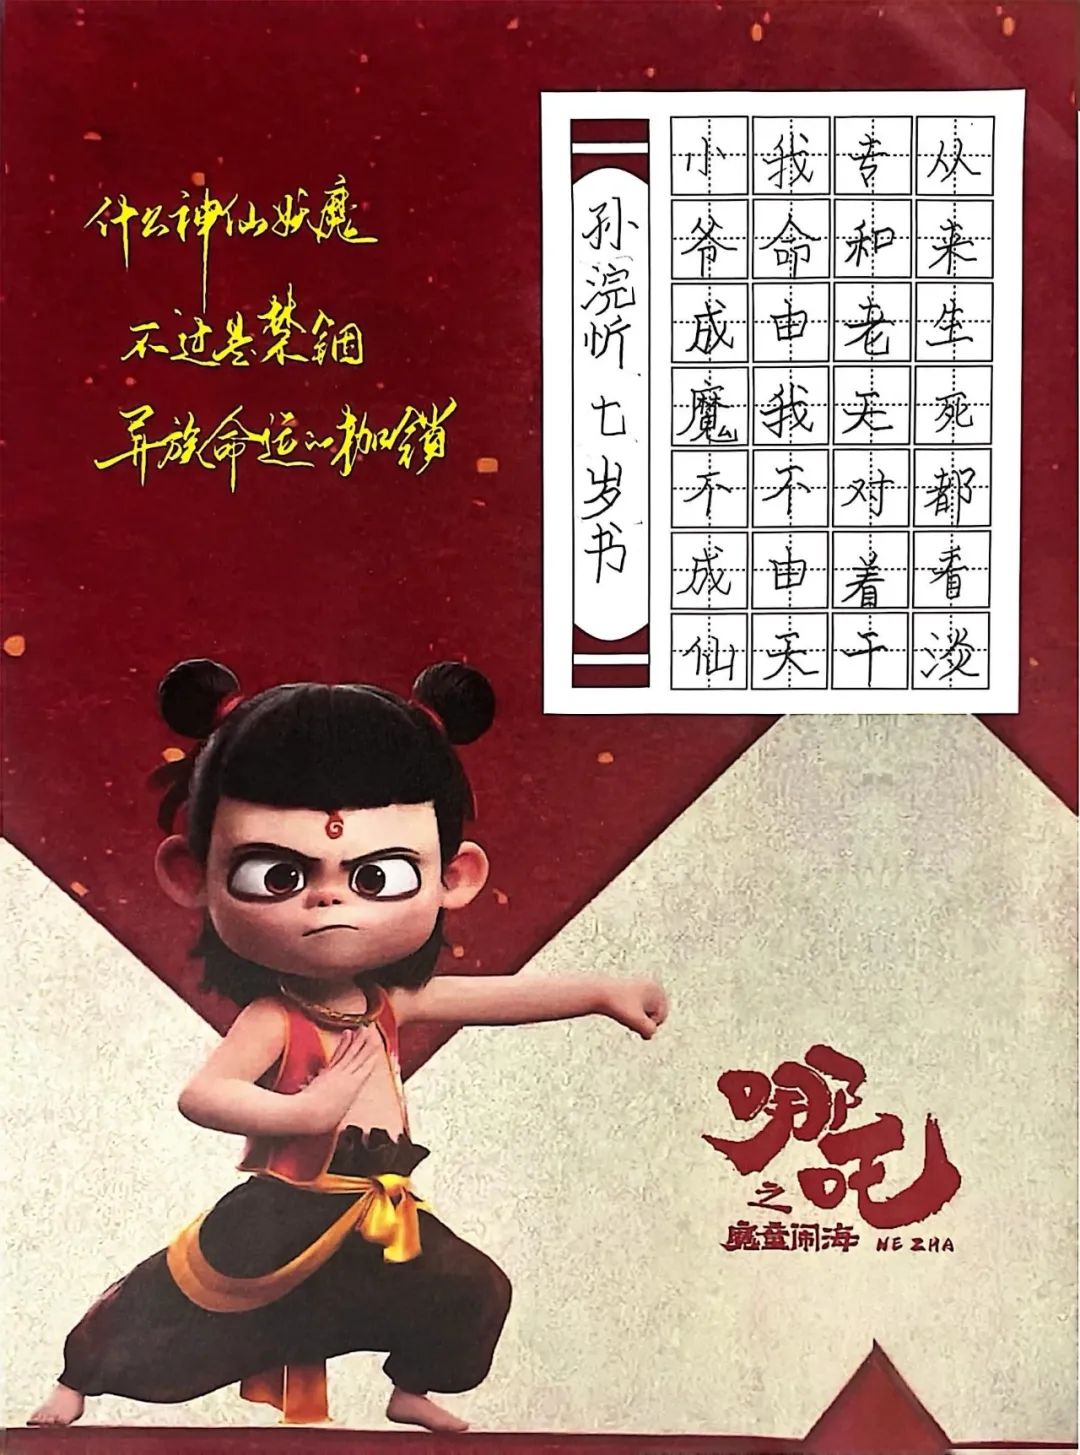 什么神仙妖魔
不过是禁锢
异族命运的枷锁
从来生死都看淡
专和老天对着干
我命由我不由天
小爷成魔不成仙
孙浣忻 七岁书
哪吒
之
魔童闹海 NE ZHA